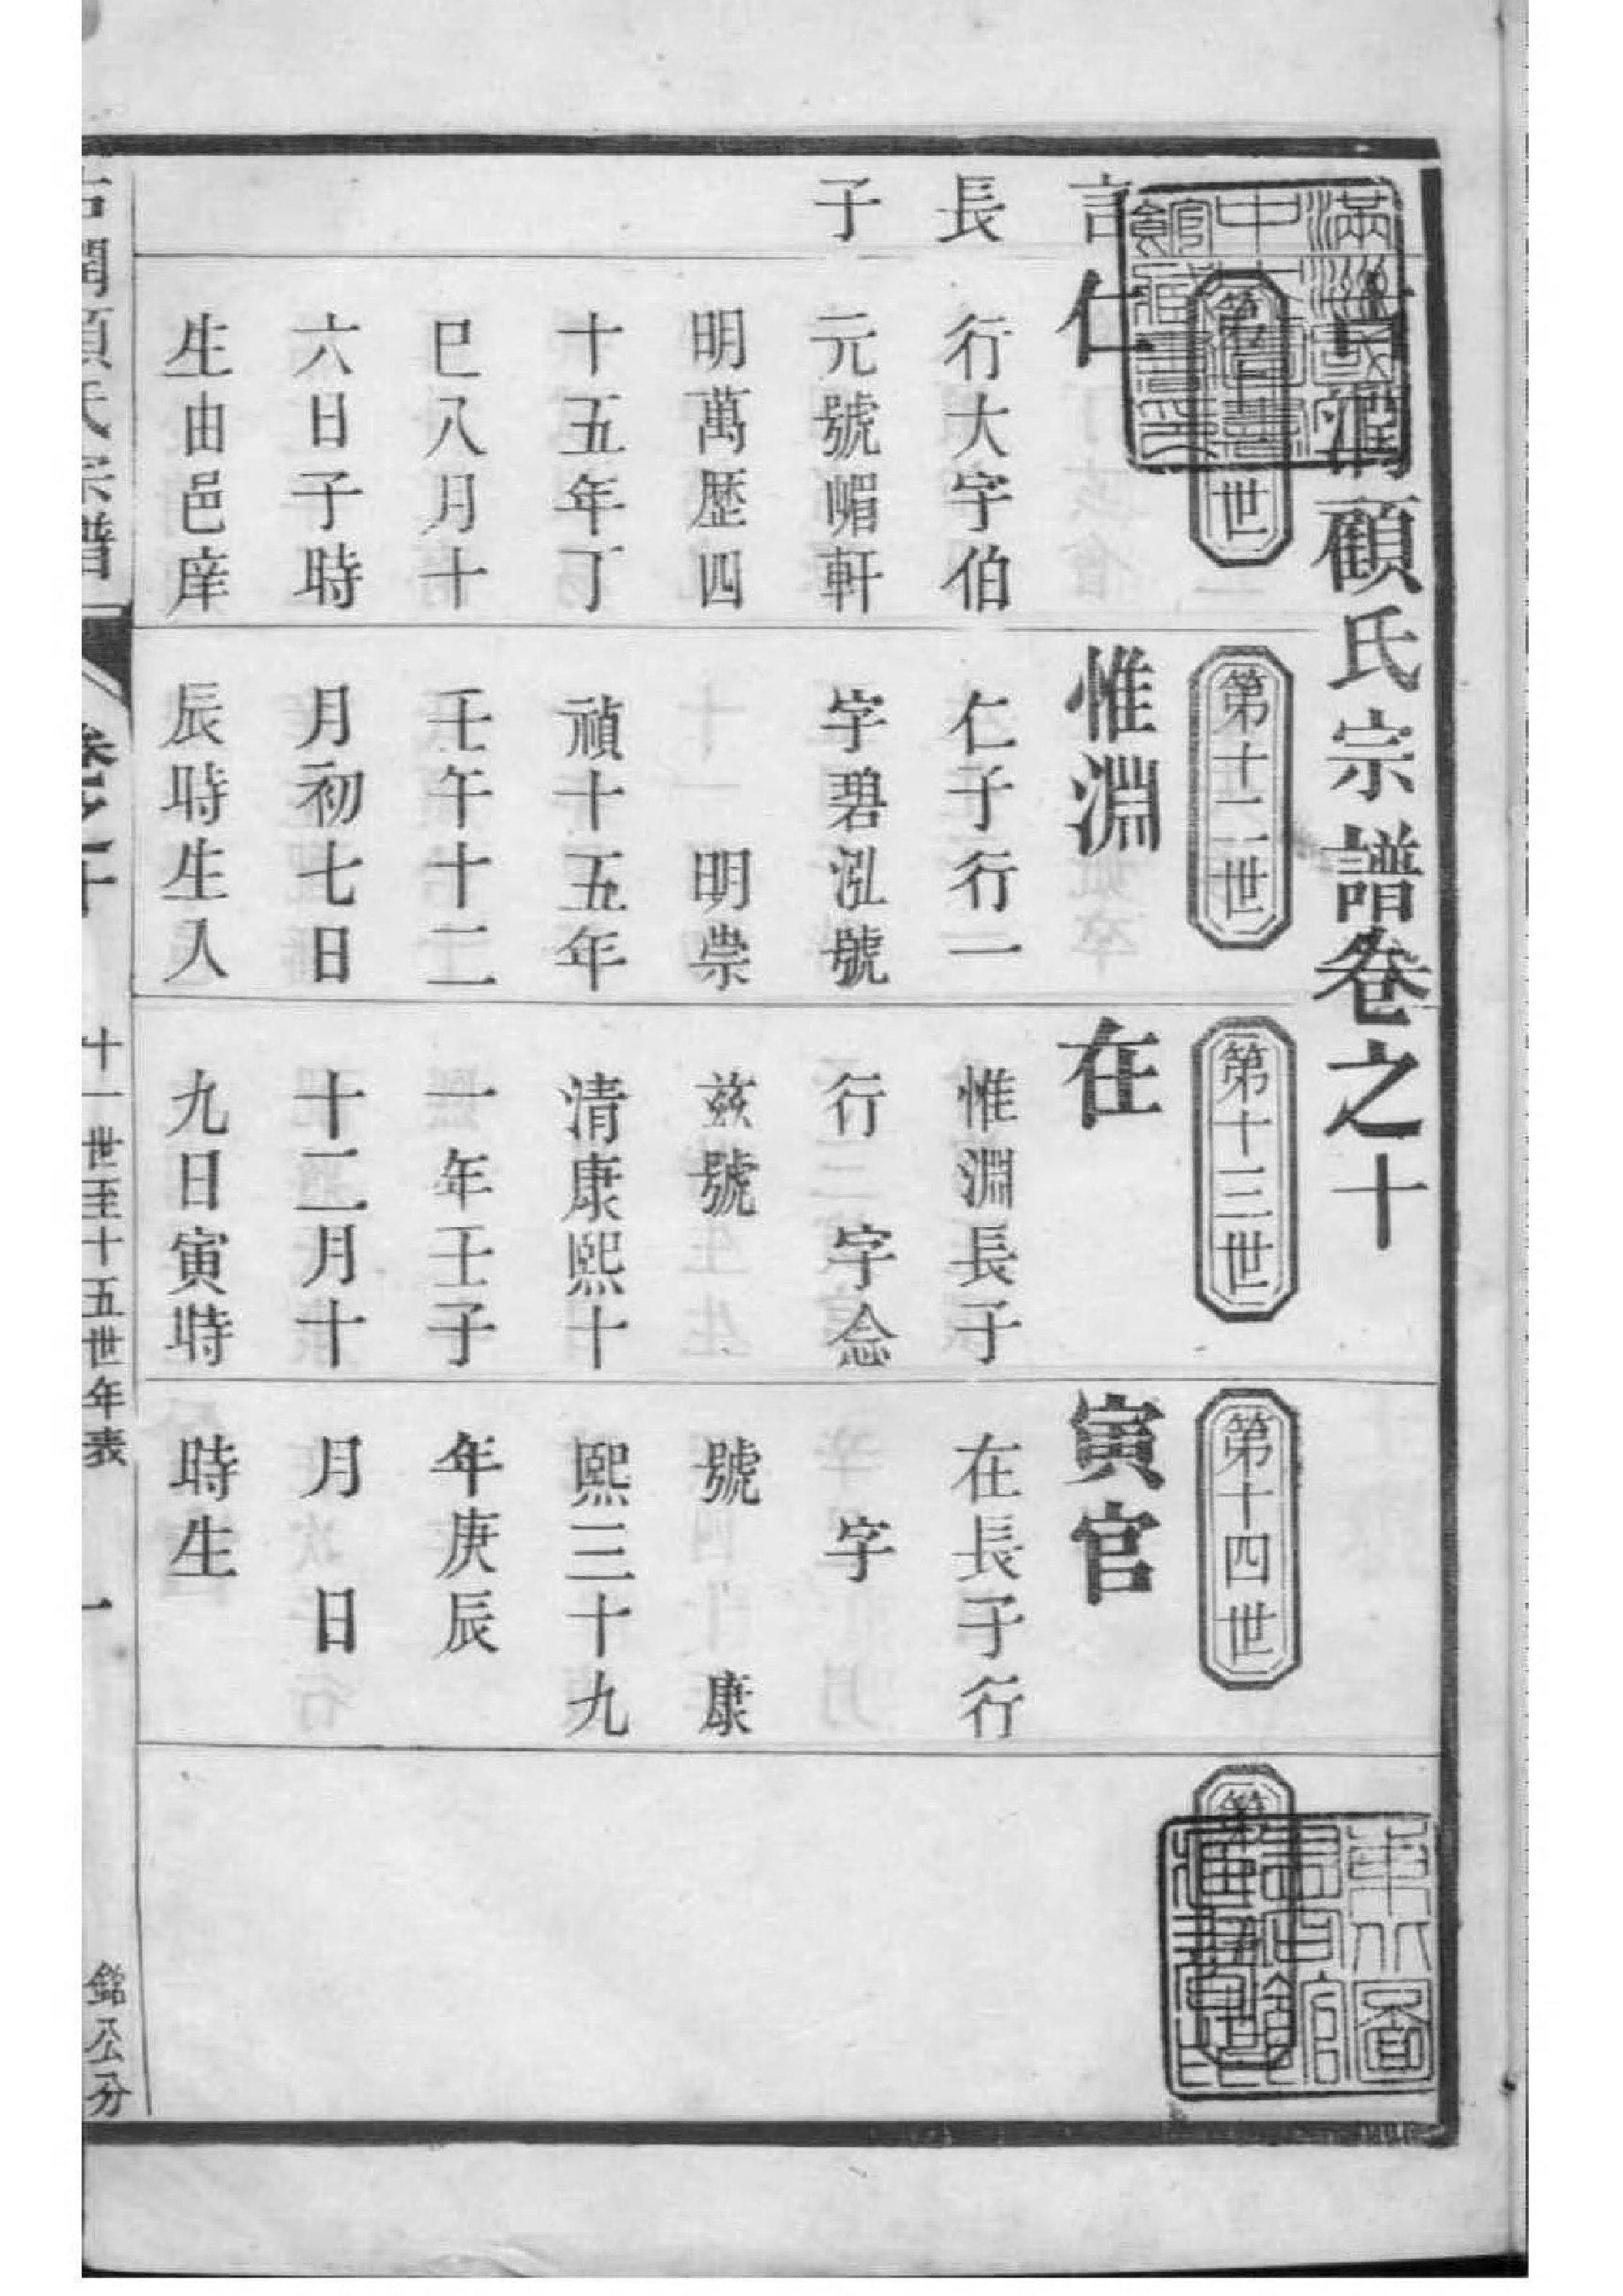 古潤顧氏宗譜卷之十
言
長
子
世
仁
行大字伯
元號嵋軒
明萬歷四
十五年丁
巳八月十
六日子時
生由邑庠
第十二世
惟淵
仁子行一
字碧泓號
明崇
禎十五年
壬午十二
月初七日
辰時生入
第十三世
在
惟淵長子
行　字念
茲號
清康熙十
一年壬子
十二月十
九日寅時
第十四世
寅官
在長子行
字
號　康
熙三十九
年庚辰
月　日
時生
第
古潤顧氏宗譜　卷之十　十一世至十五世年表　一　銘公分